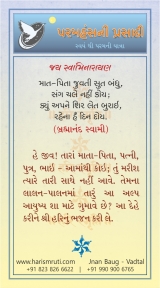 પરમહંસની પ્રસાદી
સ્વથી પરમની યાત્રા
જય સ્વામિનારાયણ
માત-પિતા જુવતી સુત બંધુ,
સંગ ચલે નહીં કોય;
ક્યું અપને શિર લેત બુરાઈ,
રહેના હૈ દિન દોય.
(બ્રહ્માનંદ સ્વામી)
હે જીવ! તારાં માતા-પિતા, પત્ની,
પુત્ર, ભાઈ - આમાંથી કોઇ; તું મરીશ
ત્યારે તારી સાથે નહીં આવે. તેમના
લાલન-પાલનમાં તારું આ અલ્પ
આયુષ્ય શા માટે ગુમાવે છે? આ દેહે
કરીને શ્રી હરિનું ભજન કરી લે.
www.harismruti.com
Jnan Baug - Vadtal
+91 823 826 6622
+91 990 900 6765